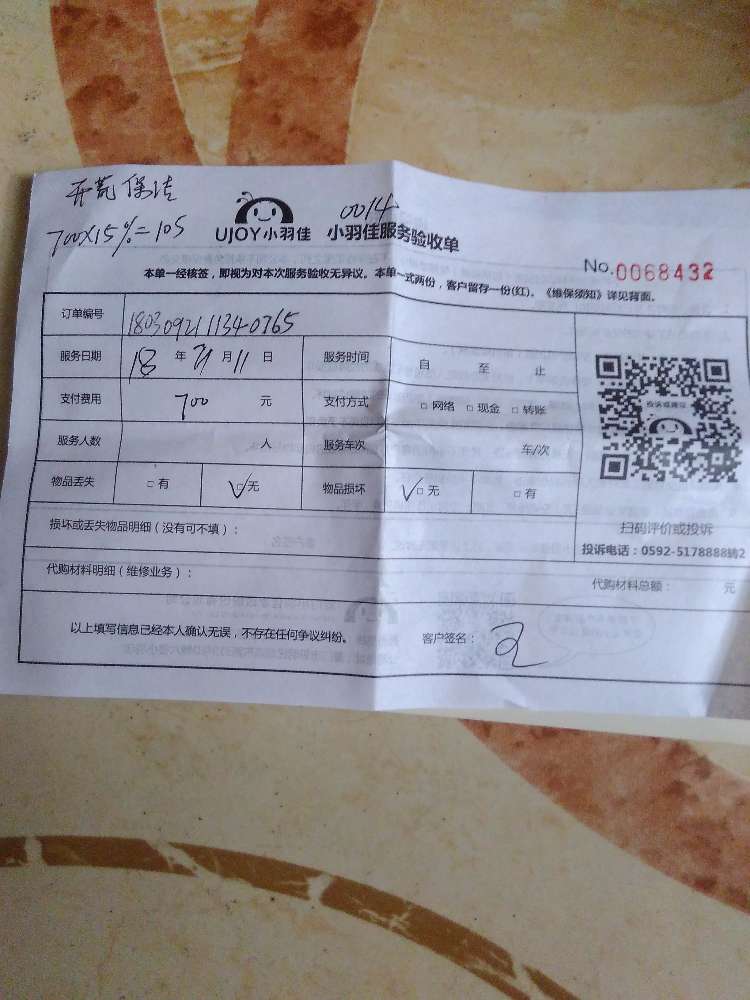 开荒保洁
700×15%=105
0014
UJOY小羽佳 小羽佳服务验收单
No.0068432
本单一经核签，即视为对本次服务验收无异议。本单一式两份，客户留存一份(红)。《维保须知》详见背面。
订单编号 180309211134-0765
服务日期 18 年 月 11 日 服务时间 自 至 止
支付费用 700 元 支付方式 □ 网络 □ 现金 □ 转账
服务人数 人 服务车次 车/次
物品丢失 □ 有 √□ 无 物品损坏 √□ 无 □ 有
投诉或建议
扫码评价或投诉
投诉电话：0592-5178888转2
损坏或丢失物品明细（没有可不填）：
代购材料明细（维修业务）： 代购材料总额： 元
以上填写信息已经本人确认无误，不存在任何争议纠纷。 客户签名：